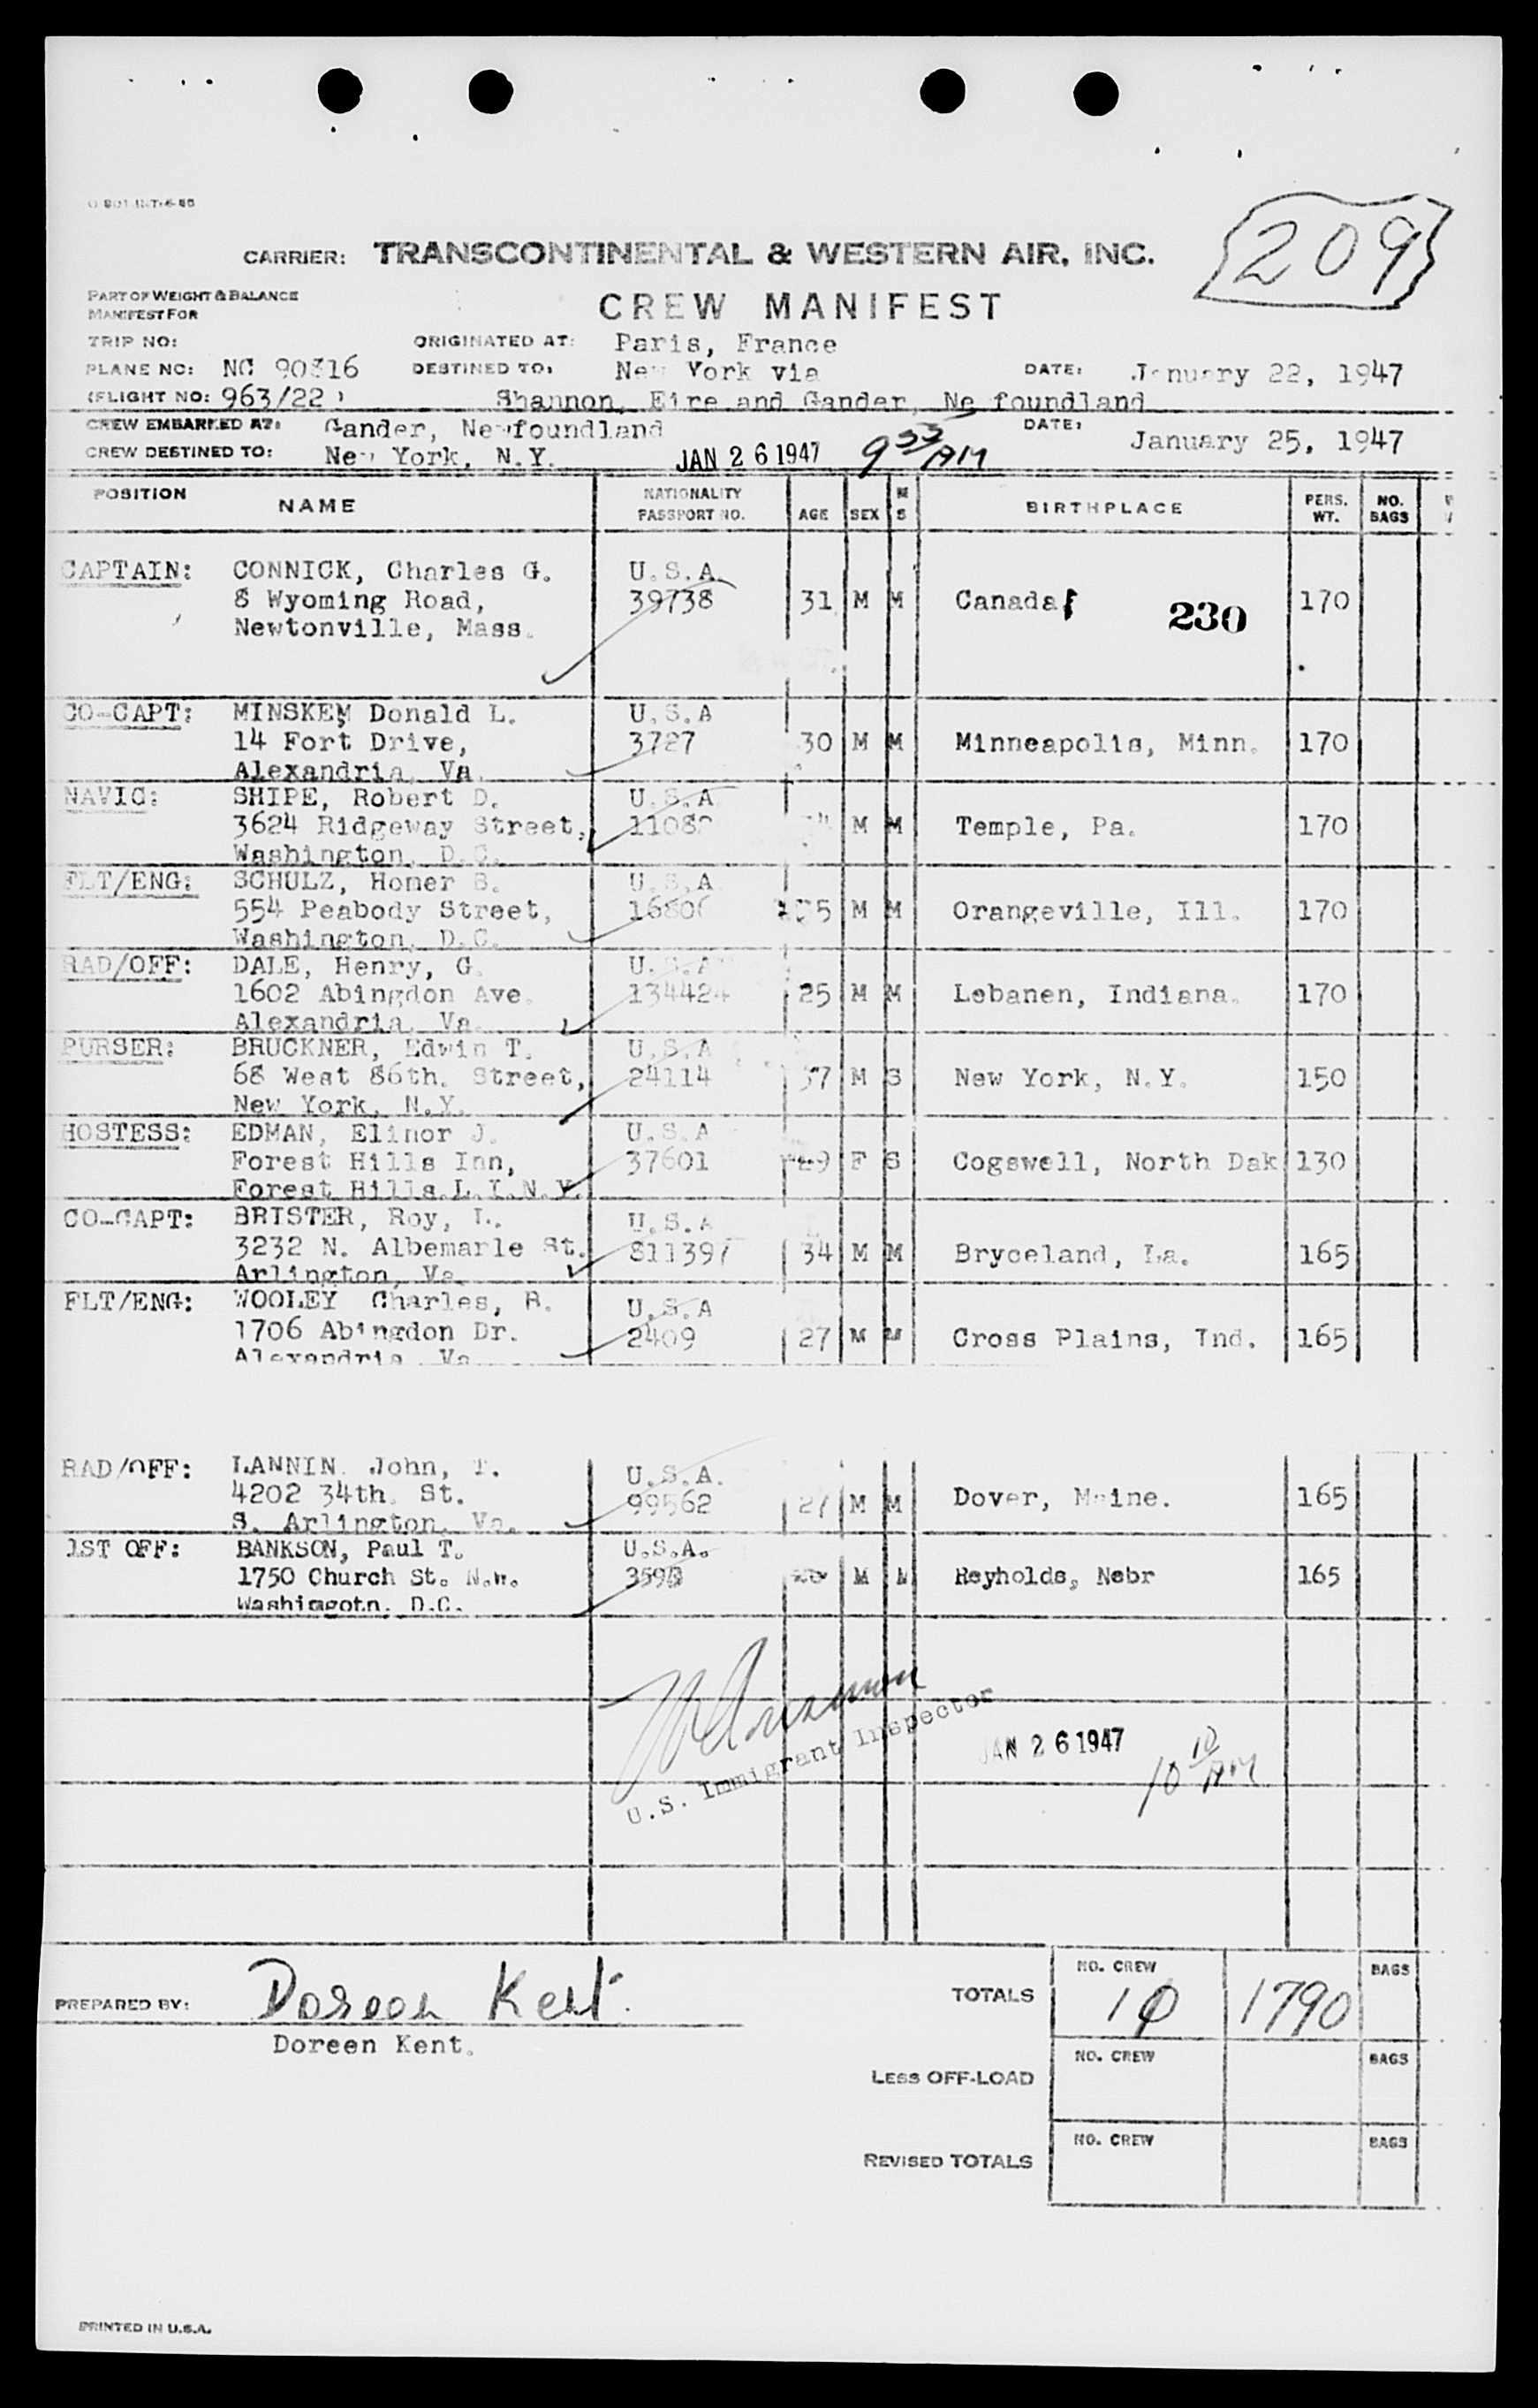 209
CARRIER: TRANSCONTINENTAL & WESTERN AIR, INC.
PART OF WEIGHT & BALANCE
MANIFEST FOR
CREW MANIFEST
TRIP NO: ORIGINATED AT: Paris, France
PLANE NO: NC 90816 DESTINED TO: New York via DATE: January 22, 1947
(FLIGHT NO: 963/22 ) Shannon, Eire and Gander, Ne foundland
CREW EMBARKED AT: Gander, Newfoundland DATE: January 25, 1947
CREW DESTINED TO: New York, N.Y. JAN 26 1947 9 53 AM
POSITION NAME NATIONALITY PASSPORT NO. AGE SEX M S BIRTHPLACE PERS. WT. NO. BAGS
CAPTAIN: CONNICK, Charles G. U.S.A.
8 Wyoming Road, 39738 31 M M Canada 230 170
Newtonville, Mass.
CO-CAPT: MINSKEM Donald L. U.S.A
14 Fort Drive, 3727 30 M M Minneapolis, Minn. 170
Alexandria, Va.
NAVIG: SHIPE, Robert D. U.S.A
3624 Ridgeway Street, M M Temple, Pa. 170
Washington, D.C.
FLT/ENG: SCHULZ, Homer B. U.S.A
554 Peabody Street, M M Orangeville, Ill. 170
Washington, D.C.
RAD/OFF: DALE, Henry, G. U.S.A
1602 Abingdon Ave. 134424 25 M M Lebanen, Indiana. 170
Alexandria, Va.
PURSER: BRUCKNER, Edwin T. U.S.A
68 West 86th. Street, 24114 37 M S New York, N.Y. 150
New York, N.Y.
HOSTESS: EDMAN, Elinor J. U.S.A
Forest Hills Inn, 37601 29 F S Cogswell, North Dak 130
Forest Hills.L.I.N.Y.
CO-CAPT: BRISTER, Roy, L. U.S.A
3232 N. Albemarle St. 811397 34 M M Bryceland, La. 165
Arlington, Va.
FLT/ENG: WOOLEY Charles, R. U.S.A
1706 Abingdon Dr. 2409 27 M M Cross Plains, Ind. 165
Alexandria Va
RAD/OFF: LANNIN John, T. U.S.A.
4202 34th. St. 99562 27 M M Dover, Maine. 165
S. Arlington, Va.
1ST OFF: BANKSON, Paul T. U.S.A.
1750 Church St. N.W. M M Reyholds, Nebr 165
Washimgotn. D.C.
U.S. Immigrant Inspector
JAN 26 1947 10 10 AM
NO. CREW BAGS
PREPARED BY: Doreen Kent. TOTALS 10 1790
Doreen Kent.
NO. CREW BAGS
LESS OFF-LOAD
NO. CREW BAGS
REVISED TOTALS
PRINTED IN U.S.A.